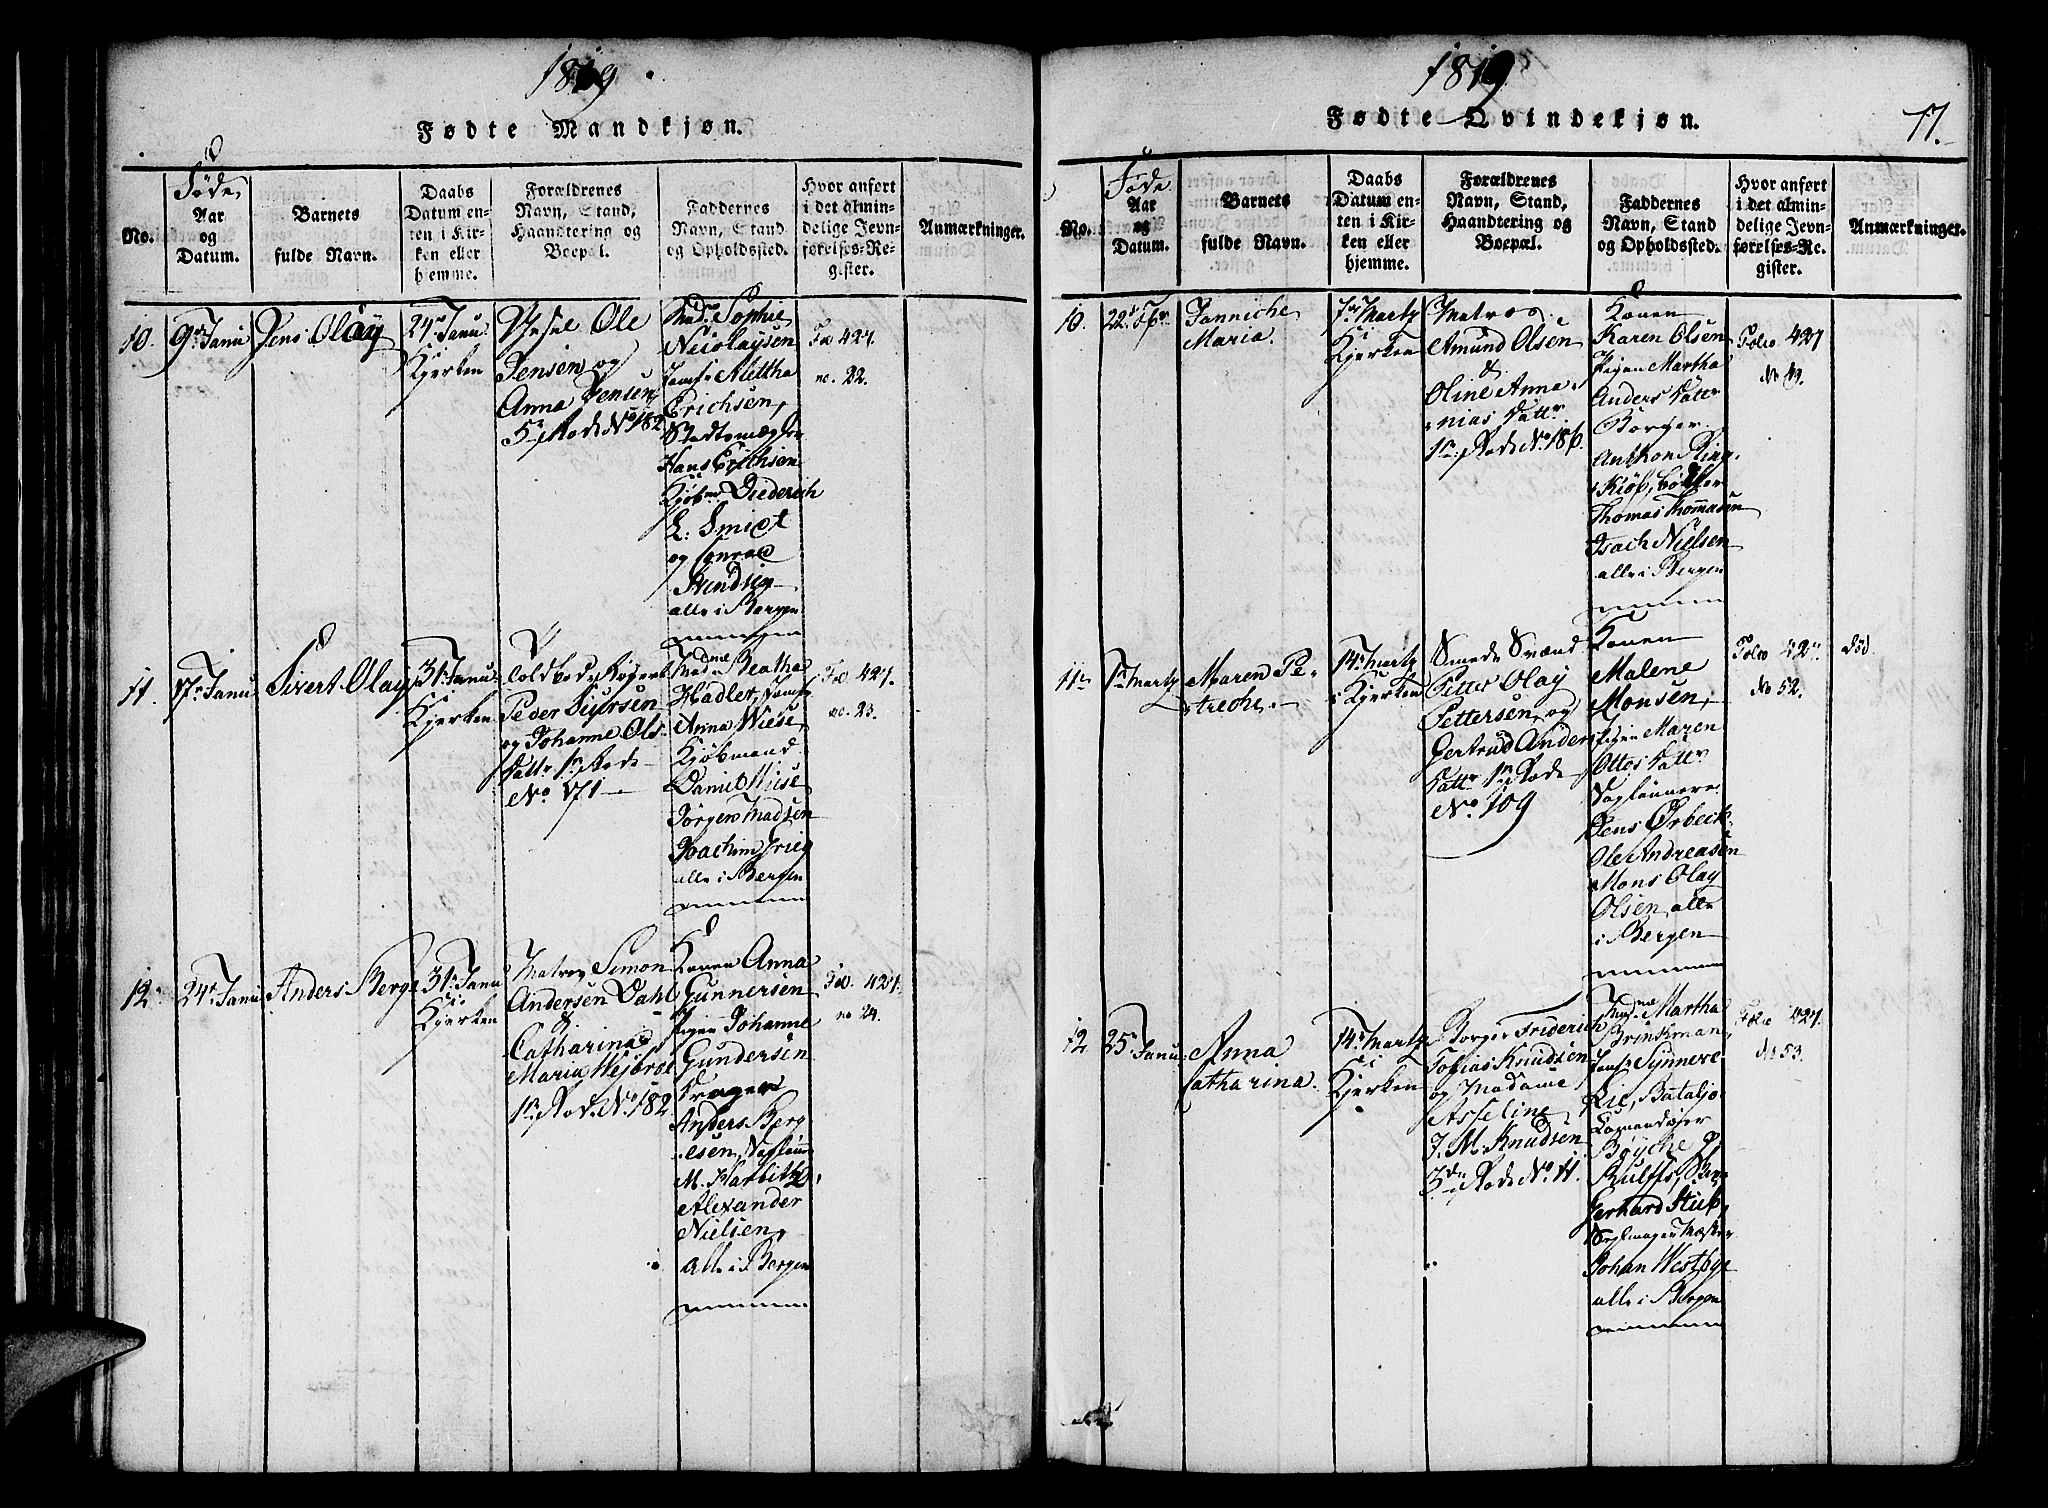 1819
Fødte Mandkjøn.
No.
Føde
Aar
og
Datum.
Barnets
fulde Navn.
Daabs
Datum en-
ten i Kir-
ken eller
hjemme.
Forældrenes
Navn, Stand,
Haandtering og
Boepæl.
Faddernes
Navn, Stand
og Opholdssted.
Hvor anført
i det almin-
delige Jevn-
førelses-Re-
gister.
Anmærkninger.
10.
9de Janu
Jens Olay
24de Janu.
i
Kjerken
Ole
Jensen og
Anna Jensen
5te Rode No 182
Mad. Sophie
Nicolaysen
Jomfr Mettha
Erichsen,
Stadtsmægler
Hans Erichsen
Kjøbmd Diederich
L: Smidt
og Conrad
alle i Bergen
Fol 427.
no. 22.
11.
17de Janu
Sivert Olay
31te Janu.
i
Kjerken
Peder Siursen
og Johanne Ols
Dattr 1te Rode
No 171
Madme Beatha
Hadler, Jomfr
Anna Wiese
Kjøbmand
Daniel Wiese
Jörgen Madsen
Joachim Grieg
alle i Bergen
Fol 427.
no. 23.
12.
24de Janu
Anders Berge
31te Janu
i
Kjerken
Matros Simon
Andersen Dahl
&
Catharina
Maria Wejbrot
1te Rode No. 182
Konen Anna
Gunnersen
Pigen Johanne
Gundersen
Drager
Anders Berg
esen, Dagløn
M. Harbitz,
Alexander
Nielsen,
alle i Bergen
Fol. 427.
no 24.
1819
Fødte Qvindekjøn.
77.
No.
Føde
Aar
og
Datum.
Barnets
fulde Navn.
Daabs
Datum en-
ten i Kir-
ken eller
hjemme.
Forældrenes
Navn, Stand,
Haandtering og
Boepæl.
Faddernes
Navn, Stand
og Opholdssted.
Hvor anført
i det almin-
delige Jevn-
førelses-Re-
gister.
Anmærkninger.
10.
22de Fbr
Janniche
Maria.
7de Martz
i
Kjerken
Matros
Amund Olsen
&
Oline Anna-
nias Dattr
1te Rode No. 186.
Konen
Karen Olsen
Pigen Martha
Anders Dattr
Borger
Anthon Ring
Kiöb, Bötker
Thomas Thommasen
Isach Nielsen
alle i Bergen
Folio 427
No 49.
11
1te Martz
Maren Pe-
treche
14de Martz
i Kjerken
Smede Svend
Petter Olay
Pettersen og
Gertrud Anders
Dattr 1te Rode
No. 109
Konen
Malene
Monsen,
Pigen Maren
Ottos Dattr
Daglønnere
Jens Ørbeck
Ole Andreasen
Mons Olay
Olsen, alle
i Bergen
Folio 427.
No 52.
død.
12
25 Janu:
Anna
Catharina.
14de Martz
i
Kjerken
Borger Friderich
Tobias Knudsen
og Madame
Asseline
J. M. Knudsen
3de Rode No. 11.
Madme Martha
Brinkman,
Jomfr Synneve
Rie, Batalj.
Komandør
Böyche
Rulffs,
Gerhard Stub,
Sejlmager Mester
Johan Westbye
alle i Bergen
Folio 427.
No 53.